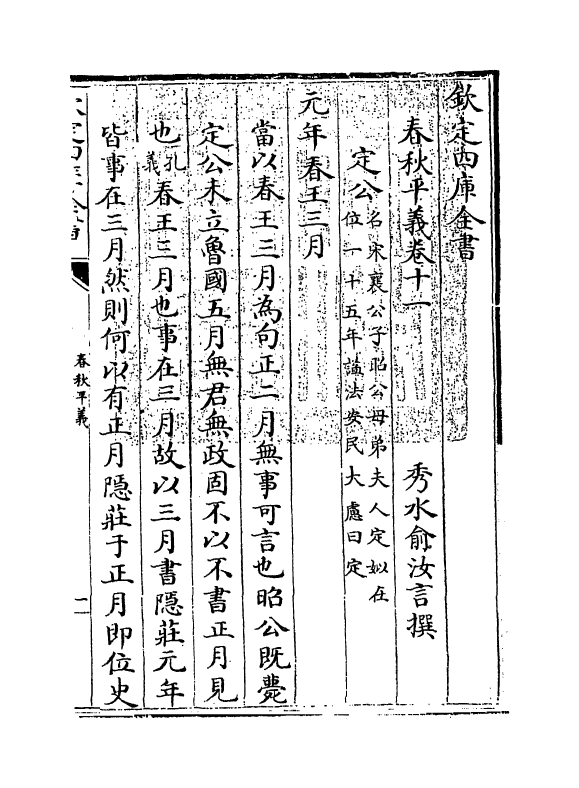 欽定四庫全書
春秋平義卷十一
秀水俞汝言撰
定公
名宋襄公子昭公母弟夫人定姒在
位一十五年諡法安民大慮曰定
元年春王三月
當以春王三月為句正二月無事可言也昭公既薨
定公未立魯國五月無君無政固不以不書正月見
也
孔
義
春王三月也事在三月故以三月書隱莊元年
皆事在三月然則何以有正月隱莊于正月即位史
春秋平義
一